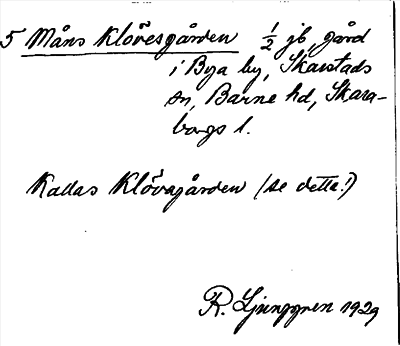 5 Måns Klövesgården ½ jb gård
i Bya by, Skarstads
sn, Barne hd, Skara-
borgs l.
Kallas Klövagården (se detta!)
R. Ljunggren 1929